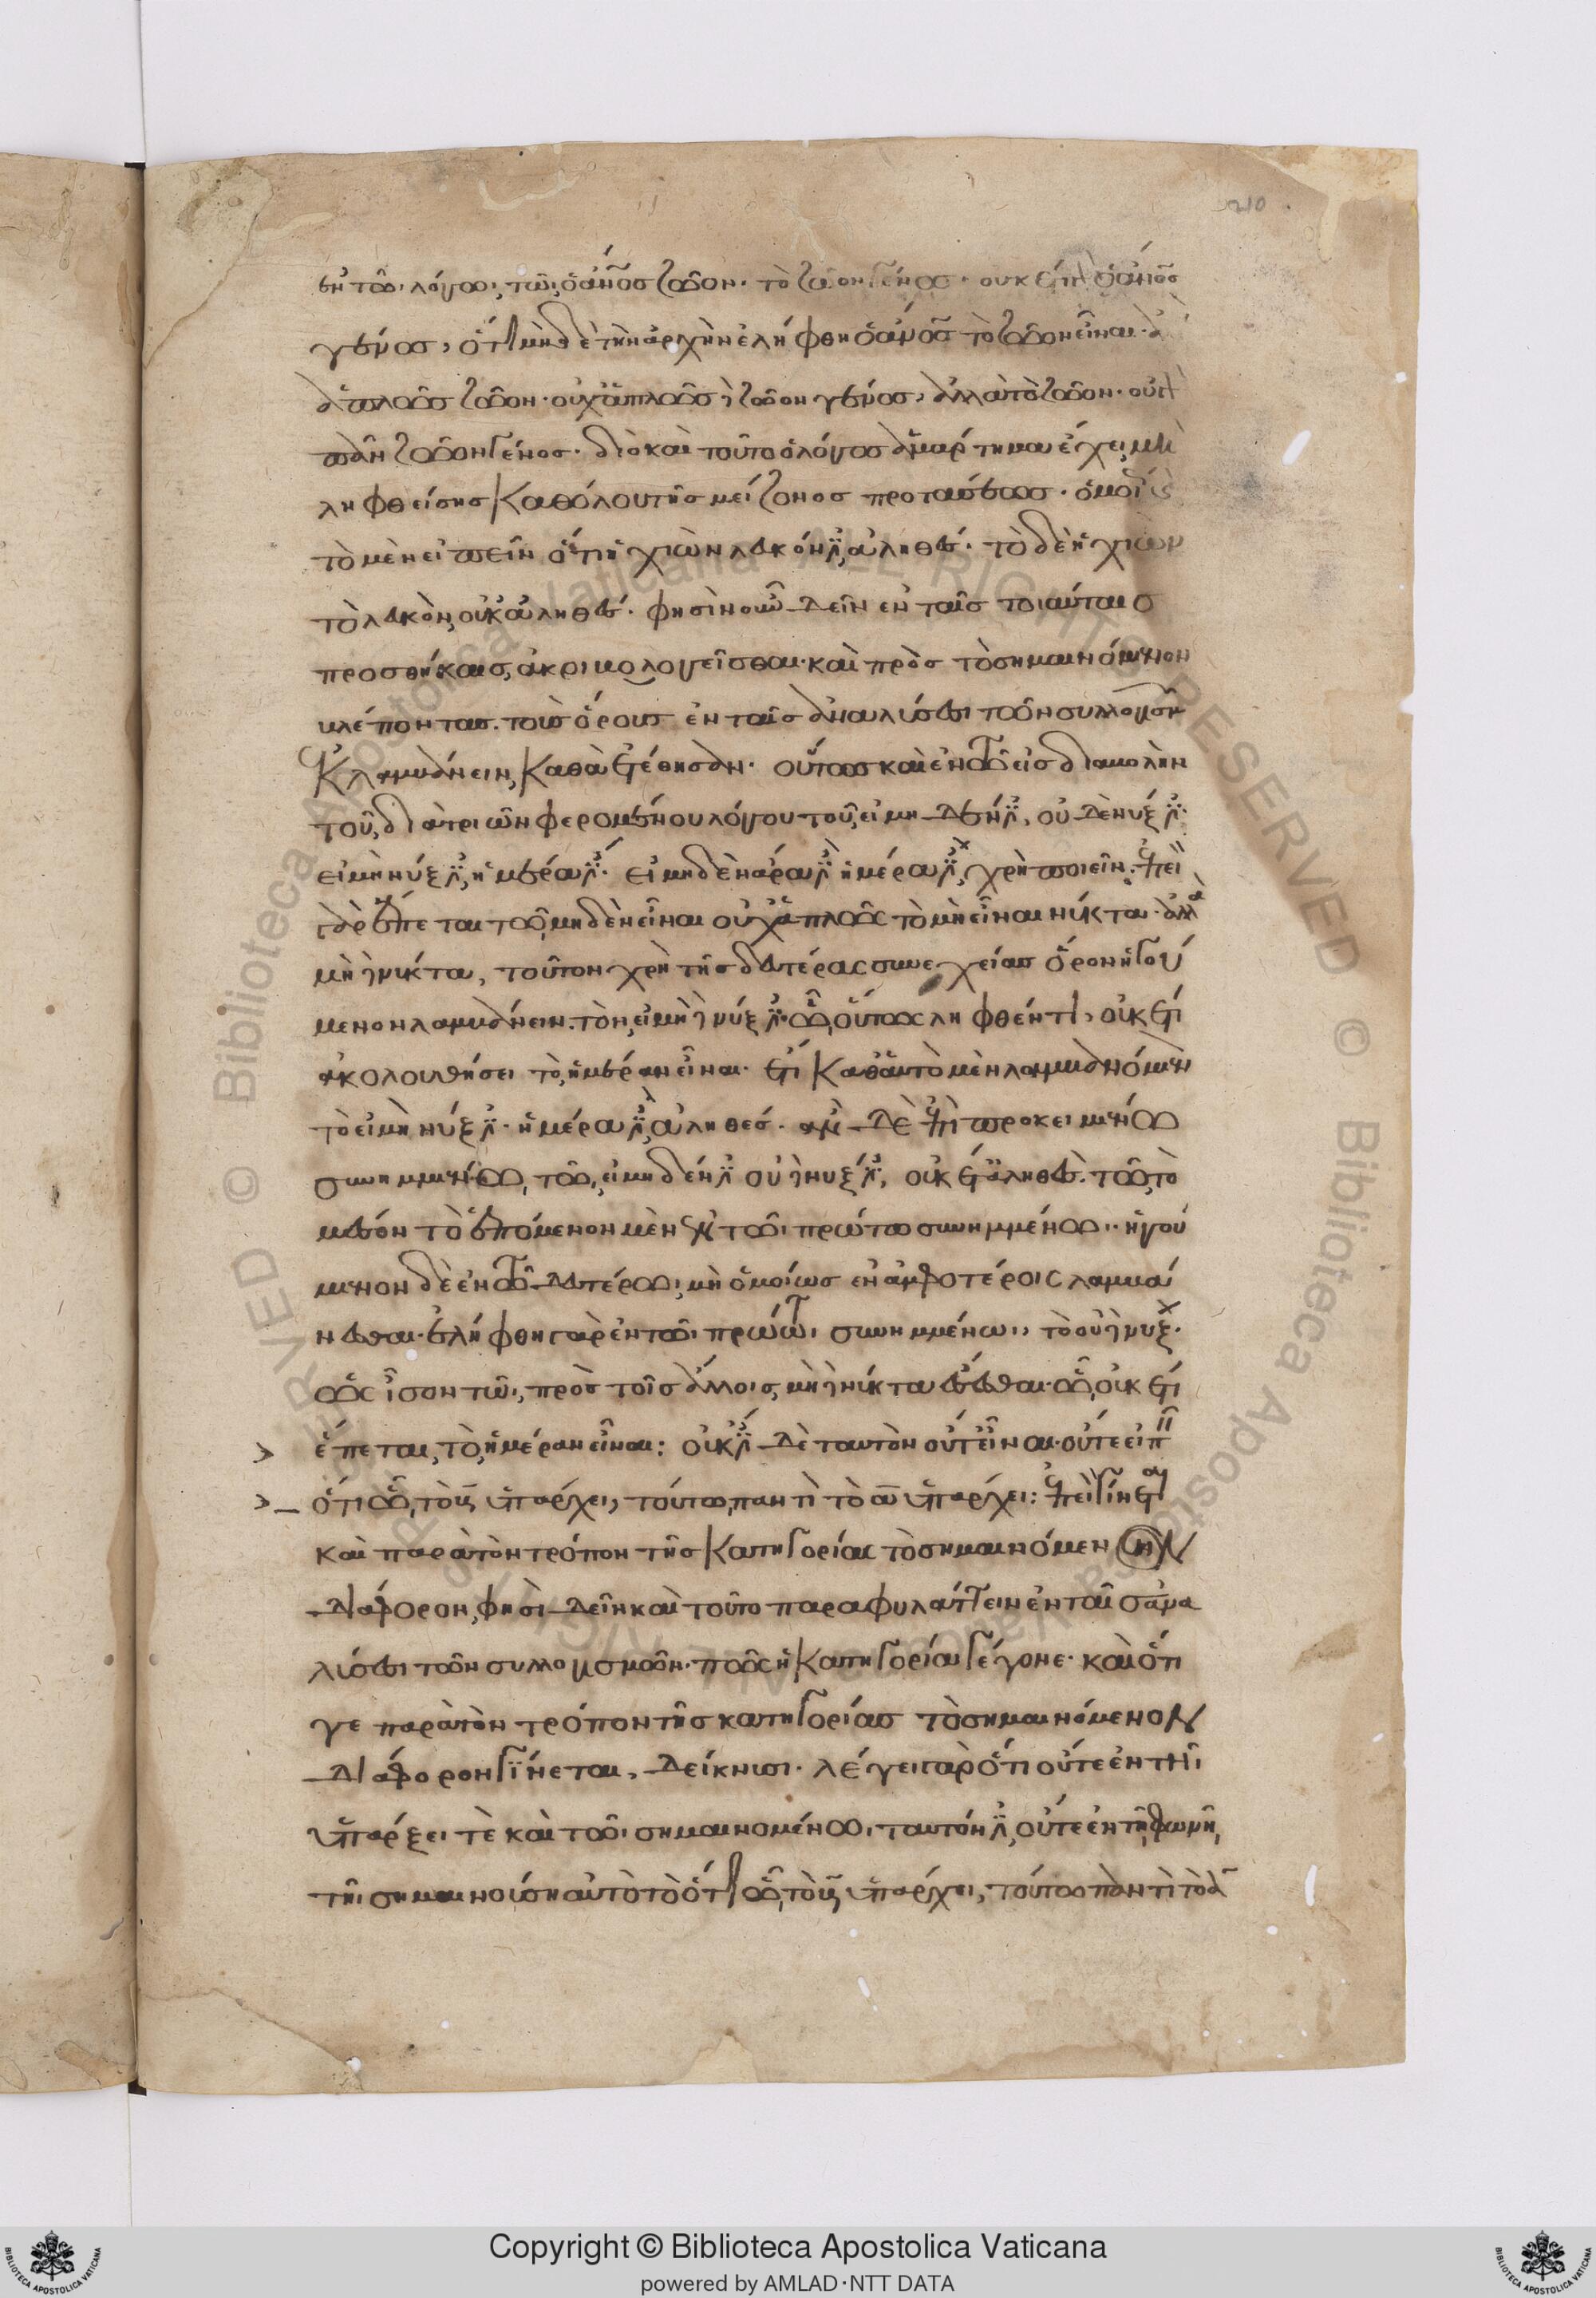 ἐν τῶι λόγωι, τῶι, ὁ ἄνος ζῶον. τὸ ζῶον γένος. οὐκέτι ὁ ἄνος
γένος, ὅτι μηδὲ τὴν ἀρχὴν ἐλήφθη ὁ ἄνος τὸ ζῶον εἶναι.
ἁπλῶς ζῶον. οὐχ ἁπλῶς ἢ ζῶον γένος, ἀλλὰ τὸ ζῶον. οὐ τὸ
πᾶν ζῶον γένος. διὸ καὶ τοῦτο ὁ λόγος ἁμάρτημα ἔχει, μὴ
ληφθείσης καθόλου τῆς μείζονος προτάσεως. ὁμοίως
τὸ μὲν εἰπεῖν ὅτι ἡ χιὼν λευκόν ἐστι, ἀληθές. τὸ δὲ ἡ χιὼν
τὸ λευκὸν, οὐκ ἀληθές. φησὶν οὖν δεῖν ἐν ταῖς τοιαύταις
προσθήκαις, ἀκριβολογεῖσθαι. καὶ πρὸς τὸ σημαινόμενον
βλέποντας. τοὺς ὅρους ἐν ταῖς ἀναλύσεσι τῶν συλλογισμῶν
ἐκλαμβάνειν, καθὰ ἐτέθησαν. οὕτως καὶ ἐν τῶι εἰς διαβολὴν
τοῦ, διὰ τριῶν φερομένου λόγου τοῦ, εἰ μηδέν ἐστι, οὐδὲ νύξ ἐστι.
εἰ μὴ νύξ ἐστι, ἡμέρα ἐστί. εἰ μηδὲν ἄρα ἐστὶ ἡμέρα ἐστί, χρὴ ποιεῖν. ἐπεὶ
γὰρ ἕπεται τῶι, μηδὲν εἶναι οὐχ ἁπλῶς τὸ μὴ εἶναι νύκτα. ἀλλὰ
μὴ ἢ νύκτα, τοῦτον χρὴ τῆς δευτέρας συνεχείας ὅρον ἡγού
μενον λαμβάνειν. τὸν, εἰ μὴ ἢ νύξ ἐστι. ὧι, οὕτως ληφθέντι, οὐκέτι
ἀκολουθήσει τὸ, ἡμέραν εἶναι. ἔτι καθ' αὑτὸ μὲν λαμβανόμενον
τὸ εἰ μὴ νύξ ἐστι. ἡμέρα ἐστὶ, ἀληθές. ἅμα δὲ ἐπὶ προκειμένωι
συνημμένωι, τῶι, εἰ μηδέν ἐστι οὐ ἢ νύξ ἐστι, οὐκέτι ἀληθές. τῶι, τὸ
μέσον τὸ ἑπόμενον μὲν ἐν τῶι πρώτωι συνημμένωι. ἡγού
μενον δὲ ἐν τῶι δευτέρωι, μὴ ὁμοίως ἐν ἀμφοτέροις λαμβά
νεσθαι. ἐλήφθη γὰρ ἐν τῶι πρώτωι συνημμένωι, τὸ οὐ ἢ νύξ.
ὡς ἴσον τῶι, πρὸς τοῖς ἄλλοις, μὴ ἢ νύκτα ἔσεσθαι. ὧι, οὐκέτι
ἕπεται, τὸ, ἡμέραν εἶναι: οὐκ ἔστι δὲ ταυτὸν οὔτ' εἶναι. οὔτε εἰπεῖν
ὅτι ὧι, τὸ β ὑπάρχει, τούτωι, παντὶ τὸ α ὑπάρχει: ἐπεὶ γίνεται
καὶ παρὰ τὸν τρόπον τῆς κατηγορίας τὸ σημαινόμενον
διάφορον, φησὶ δεῖν καὶ τοῦτο παραφυλάττειν ἐν ταῖς ἀνα
λύσεσι τῶν συλλογισμῶν. πῶς ἡ κατηγορία γέγονε. καὶ ὅτι
γε παρὰ τὸν τρόπον τῆς κατηγορίας τὸ σημαινόμενον
διάφορον γίνεται, δείκνυσι. λέγει γὰρ ὅτι οὔτε ἐν τῆι
ὑπάρξει τὲ καὶ τῶι σημαινομένωι, ταυτόν ἐστι, οὔτε ἐν τῆι φωνῆι,
τῆι σημαινούσηι αὐτὸ τὸ ὅτι ὧι, τὸ β ὑπάρχει, τούτωι παντὶ τὸ α
Copyright © Biblioteca Apostolica Vaticana
powered by AMLAD·NTT DATA